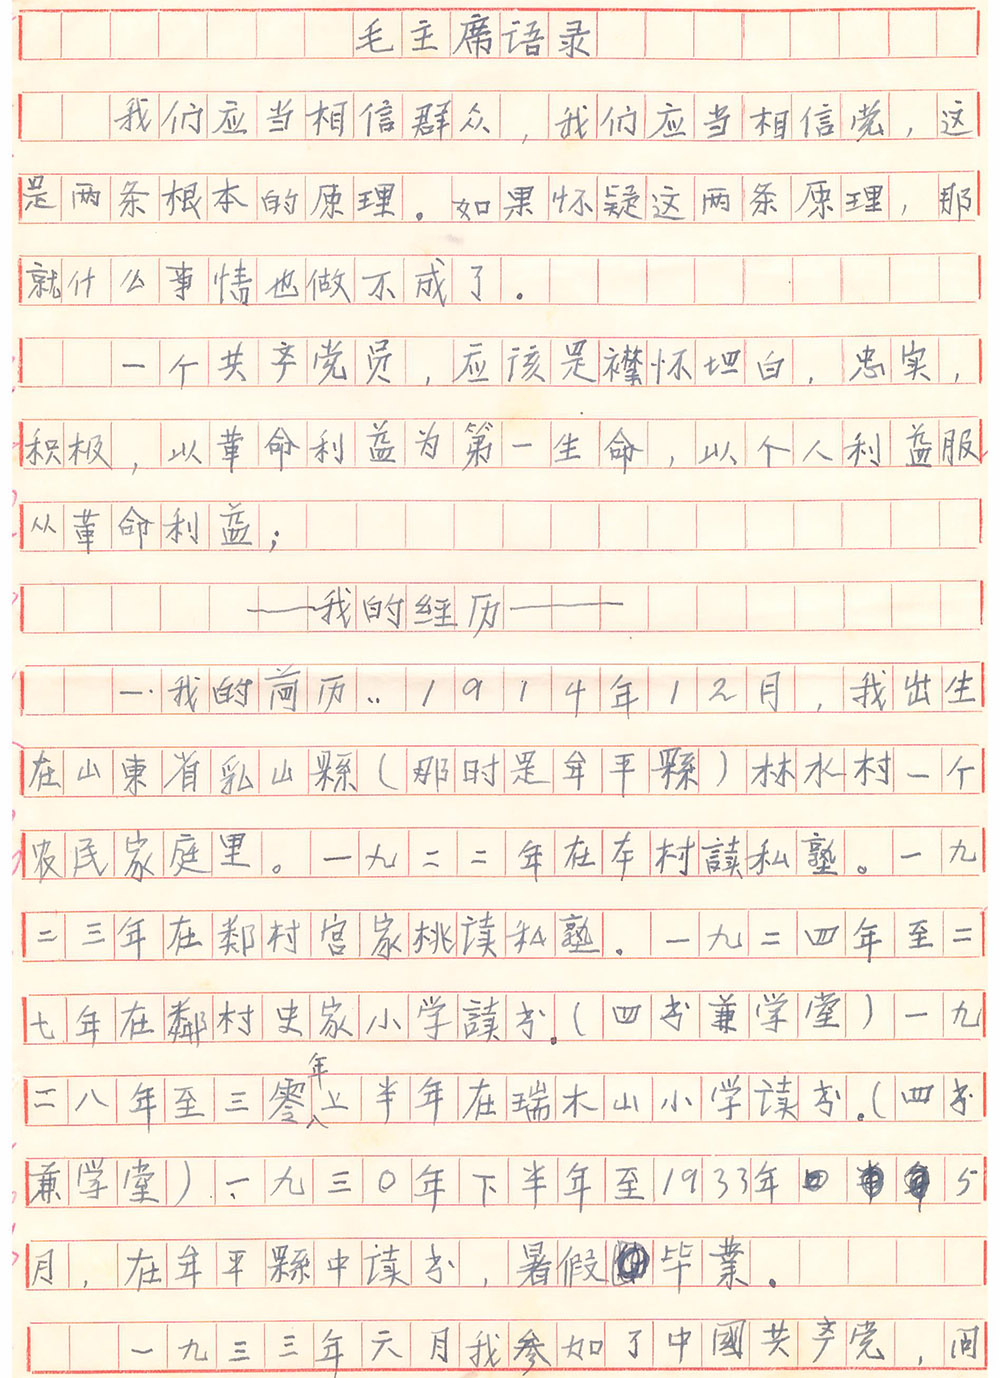 毛主席语录
我们应当相信群众，我们应当相信党，这
是两条根本的原理。如果怀疑这两条原理，那
就什么事情也做不成了．
一个共产党员，应该是襟怀坦白，忠实，
积极，以革命利益为第一生命，以个人利益服
从革命利益；
——我的经历——
一．我的简历：1914年12月，我出生
在山東省乳山縣（那时是牟平縣）林水村一个
农民家庭里。一九二二年在本村讀私塾。一九
二三年在鄰村宫家桃读私塾．一九二四年至二
七年在鄰村史家小学讀书．（四书兼学堂）一九
二八年至三零年上半年在瑞木山小学读书．（四书
兼学堂）、一九三0年下半年至1933年5
月，在牟平縣中读书，暑假毕業．
一九三三年元月我参加了中國共产党，同